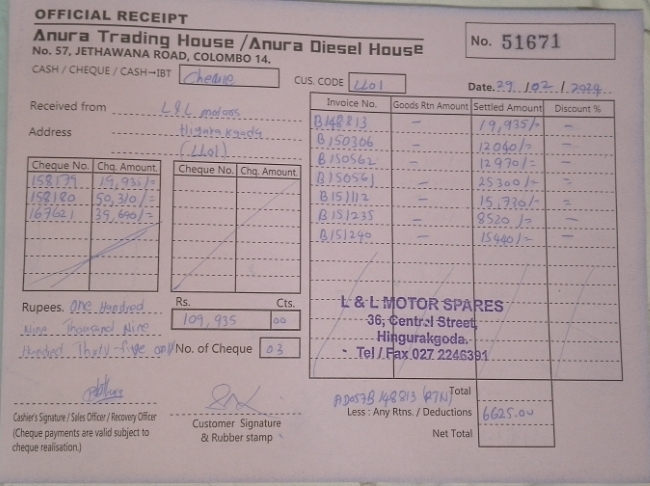 OFFICIAL RECEIPT
Anura Trading House / Anura Diesel House
No. 57, JETHAWANA ROAD, COLOMBO 14.
No. 51671
CASH / CHEQUE / CASH→IBT Cheque
CUS. CODE LL01
Date. 29 / 02 / 2024
Received from L&L motors
Address Higurakgoda
(LL01)
Invoice No. Goods Rtn Amount Settled Amount Discount %
B148813 – 19,935/= –
B150306 – 12040/= –
B150562 – 12970/= –
B150561 – 25300/= =
B151112 – 15,730/= =
B151235 – 8520/= –
B151240 – 15440/= –
Cheque No. Chq. Amount. Cheque No. Chq. Amount.
158179 19,935/=
158180 50,310/=
167621 39,690/=
L & L MOTOR SPARES
36, Central Street,
Hingurakgoda.
Tel / Fax 027 2246391
Rupees. One Hundred
Nine Thousand Nine
Hundred Thirty-five only
Rs. Cts.
109,935 00
No. of Cheque 03
Cashier's Signature / Sales Officer / Recovery Officer
(Cheque payments are valid subject to
cheque realisation.)
Customer Signature
& Rubber stamp
B148813 (RTN) Total
Less : Any Rtns. / Deductions 6625.00
Net Total